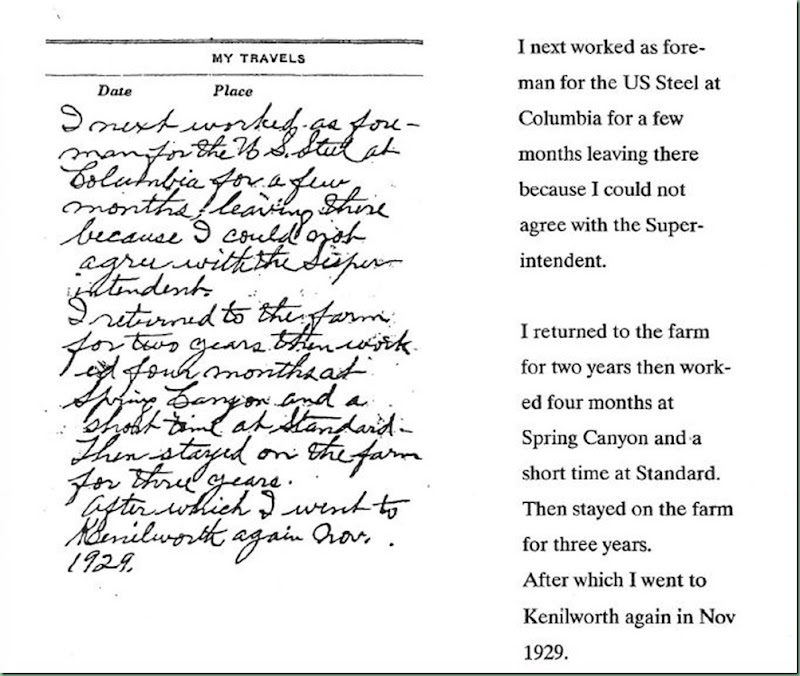 MY TRAVELS
Date Place
I next worked as fore-
man for the U S. Steel at
Columbia for a few
months, leaving there
because I could not
agree with the Super-
intendent.
I returned to the farm
for two years then work-
ed four months at
Spring Canyon and a
short time at Standard-
Then stayed on the farm
for three years.
After which I went to
Kenilworth again Nov.
1929.
I next worked as fore-
man for the US Steel at
Columbia for a few
months leaving there
because I could not
agree with the Super-
intendent.
I returned to the farm
for two years then work-
ed four months at
Spring Canyon and a
short time at Standard.
Then stayed on the farm
for three years.
After which I went to
Kenilworth again in Nov
1929.